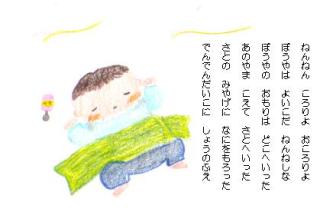 ねんねん ころりよ おころりよ
ぼうやは よいこだ ねんねしな
ぼうやの おもりは どこへいった
あのやま こえて さとへいった
さとの みやげに なにをもろった
でんでんだいこに しょうのふえ